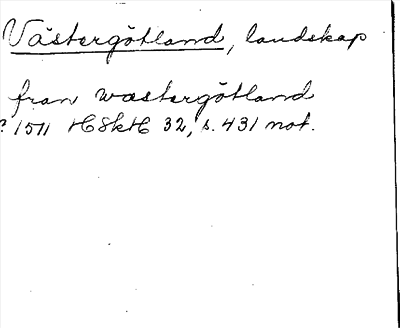 Västergötland, landskap
fran wæstergötland
? 1511 HSkH 32, s. 431 not.